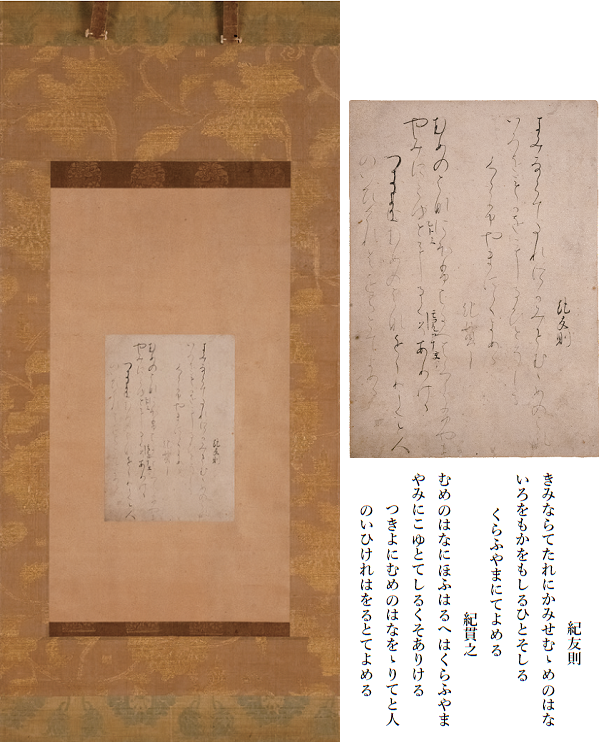 紀友則
きみならてたれにかみせむゝめのはな
いろをもかをもしるひとそしる
くらふやまにてよめる
紀貫之
むめのはなにほふはるへはくらふやま
やみにこゆとてしるくそありける
つきよにむめのはなをゝりてと人
のいひけれはをるとてよめる